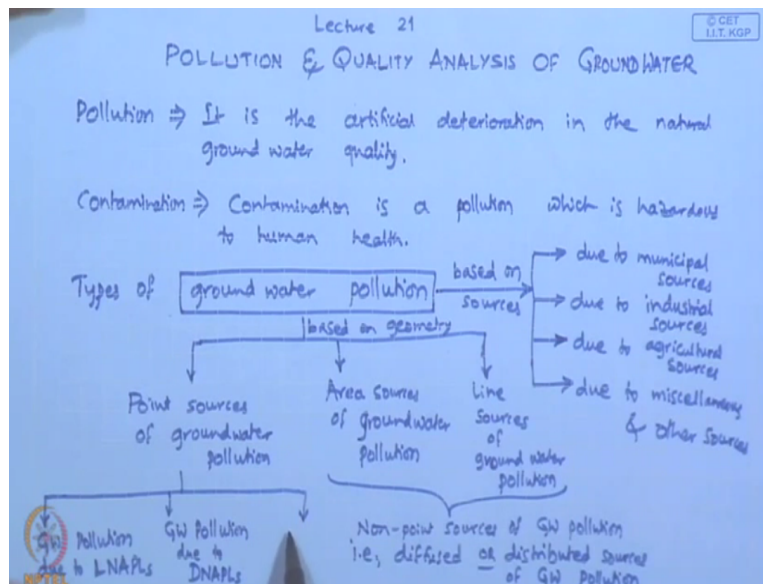 Lecture 21
© CET
I.I.T. KGP
POLLUTION & QUALITY ANALYSIS OF GROUNDWATER
Pollution ⇒ It is the artificial deterioration in the natural
ground water quality.
Contamination ⇒ Contamination is a pollution which is hazardous
to human health.
Types of ground water pollution
based on
sources
due to municipal
sources
due to industrial
sources
due to agricultural
sources
due to miscellaneous
& other sources
based on geometry
Point sources
of groundwater
pollution
Area sources
of groundwater
pollution
Line
sources
of
ground water
pollution
GW Pollution
due to LNAPLs
GW Pollution
due to
DNAPLs
Non-point sources of GW pollution
i.e., diffused OR distributed sources
of GW Pollution
NPTEL